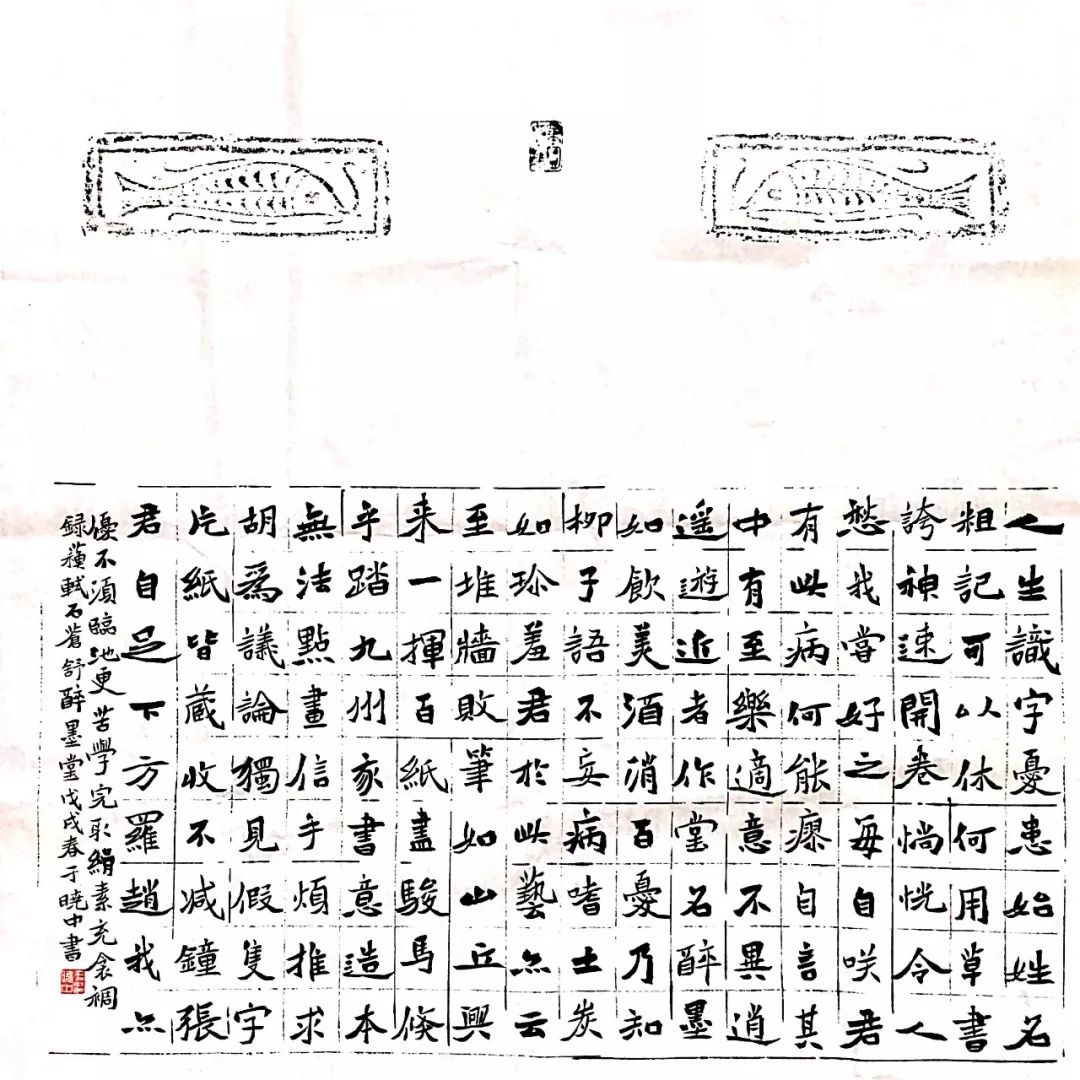 人生識字憂患始姓名
粗記可以休何用草書
誇神速開卷惝恍令人
愁我嘗好之每自咲君
有此病何能瘳自言其
中有至樂適意不異逍
遥遊近者作堂名醉墨
如飲美酒消百憂乃知
柳子語不妄病嗜土炭
如珍羞君於此藝亦云
至堆牆敗筆如山丘興
来一揮百紙盡駿馬倏
乎踏九州家書意造本
無法點畫信手煩推求
胡爲議論獨見假隻字
片紙皆蔵收不減鐘張
君自足下方羅趙我亦
優不須臨池更苦學完取絹素充衾裯
録蘇軾石蒼舒醉墨堂戊戌春于曉中書